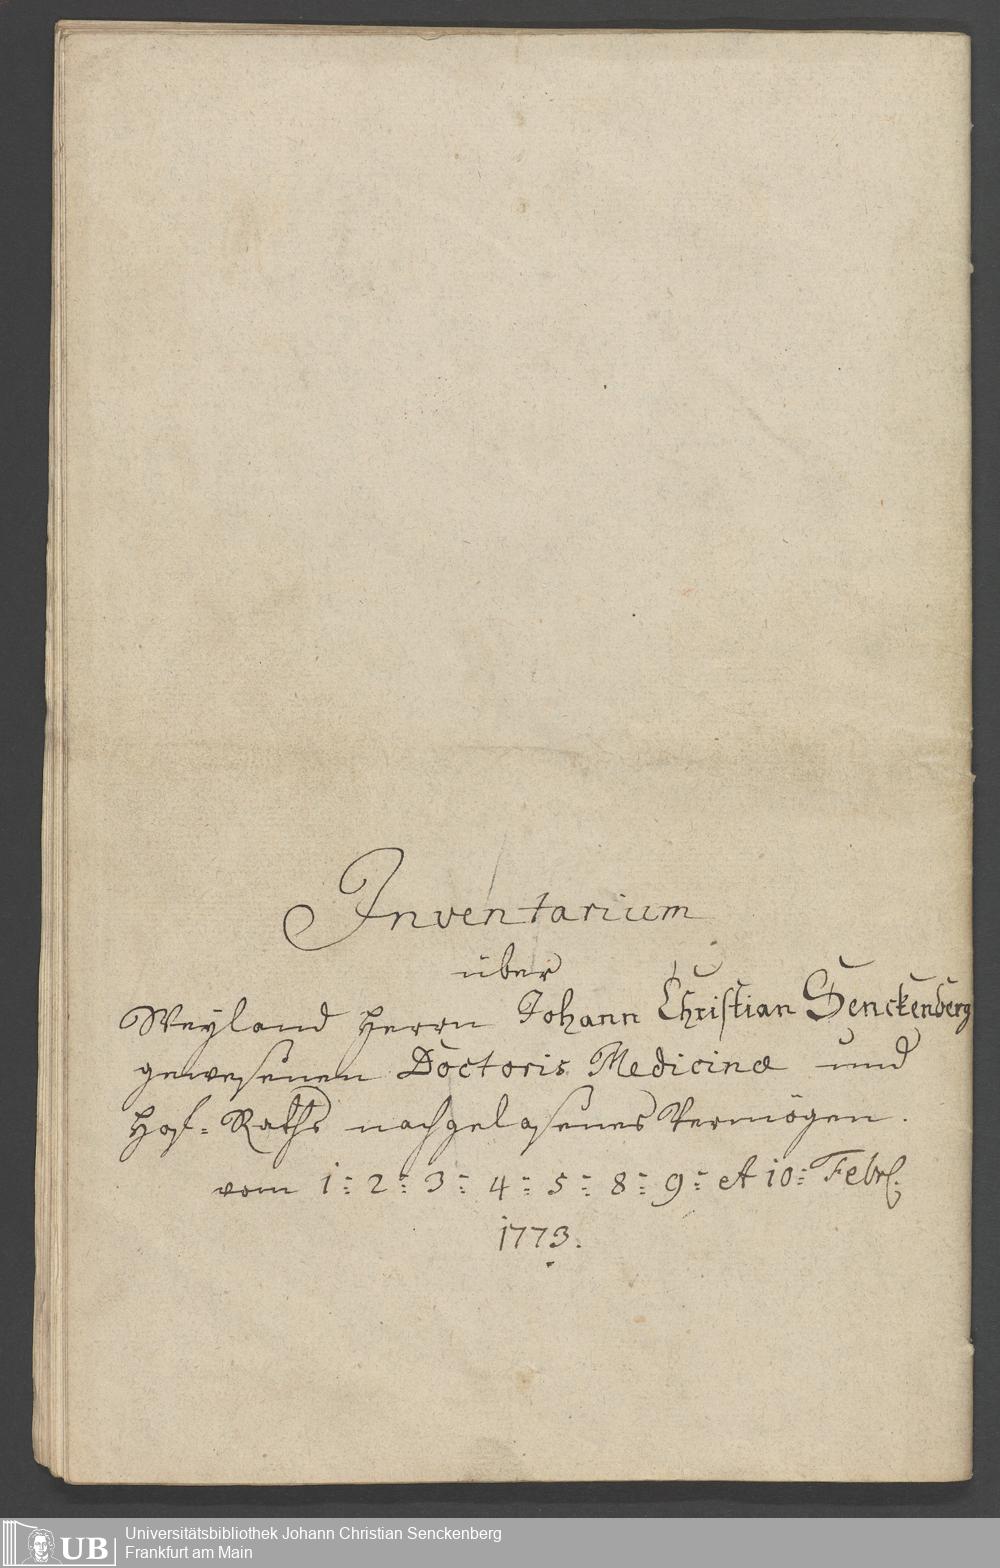 Inventarium
über
Weyland Herrn Johann Christian Senckenberg
gewesenen Doctoris Medicinæ und
Hof= Raths nachgelasenes Vermögen.
vom 1= 2= 3= 4= 5= 8= 9= et 10= Febr.
1773.
UB
Universitätsbibliothek Johann Christian Senckenberg
Frankfurt am Main